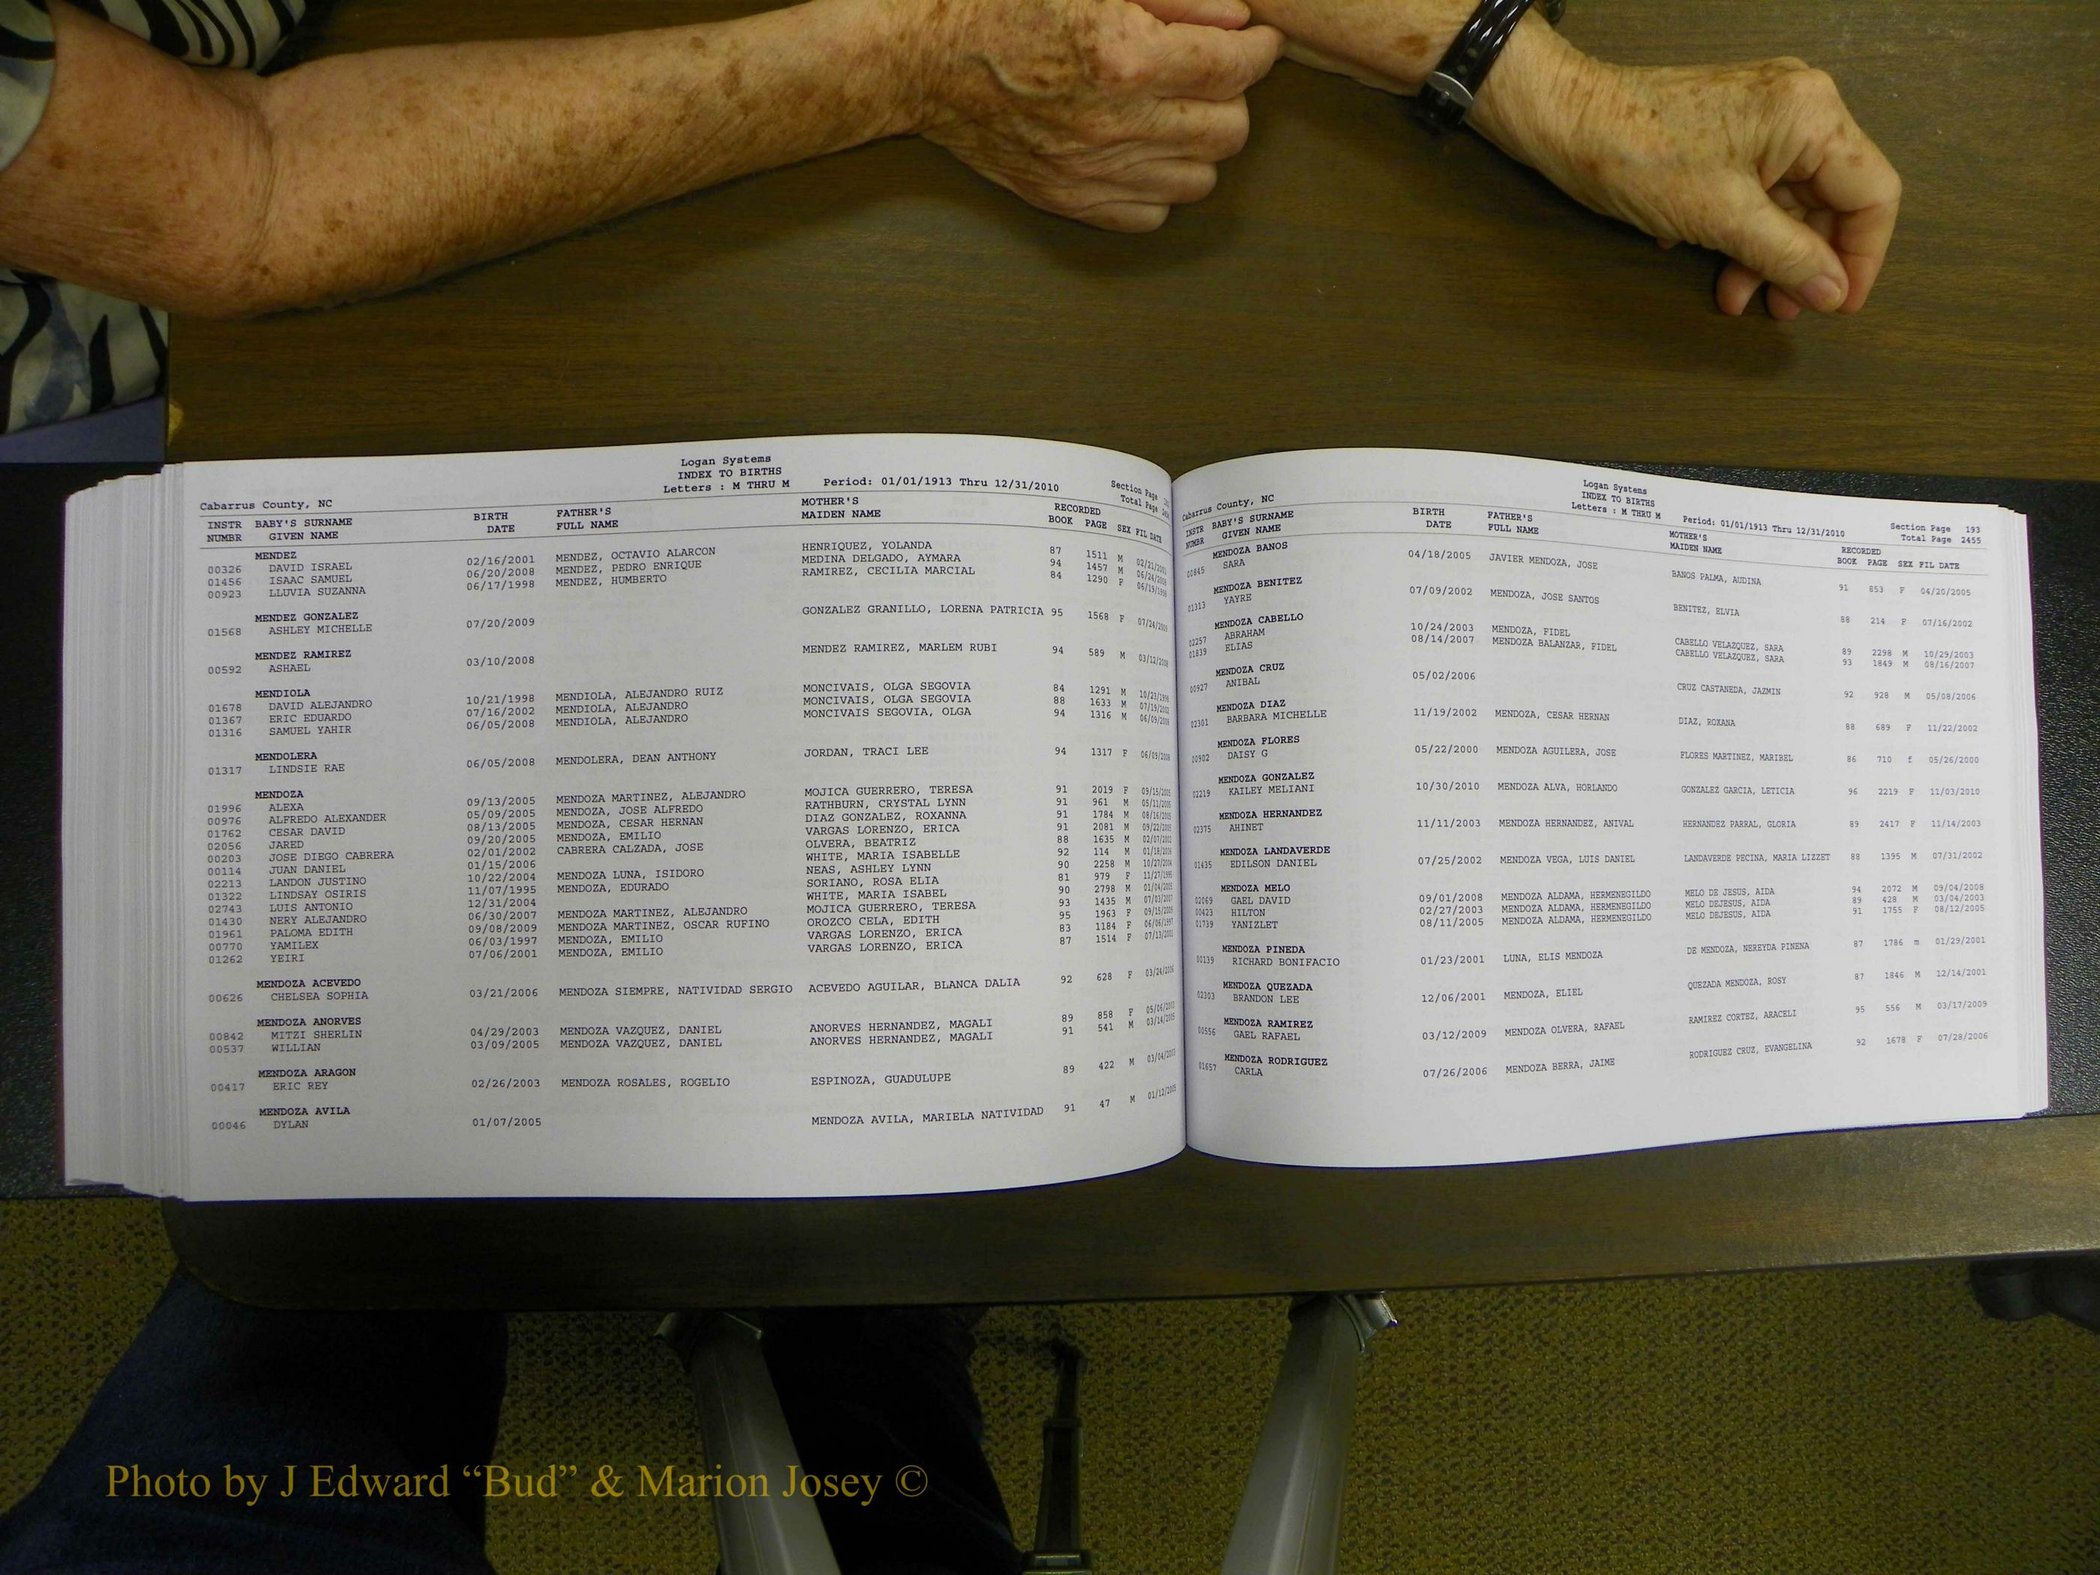 Logan Systems
INDEX TO BIRTHS
Cabarrus County, NC Letters : M THRU M Period: 01/01/1913 Thru 12/31/2010 Section Page
Total Page
INSTR BABY'S SURNAME BIRTH FATHER'S MOTHER'S RECORDED
NUMBR GIVEN NAME DATE FULL NAME MAIDEN NAME BOOK PAGE SEX FIL DATE
MENDEZ
00326 DAVID ISRAEL 02/16/2001 MENDEZ, OCTAVIO ALARCON HENRIQUEZ, YOLANDA 87 1511 M 02/21/2001
01456 ISAAC SAMUEL 06/20/2008 MENDEZ, PEDRO ENRIQUE MEDINA DELGADO, AYMARA 94 1457 M 06/24/2008
00923 LLUVIA SUZANNA 06/17/1998 MENDEZ, HUMBERTO RAMIREZ, CECILIA MARCIAL 84 1290 F 06/19/1998
MENDEZ GONZALEZ
01568 ASHLEY MICHELLE 07/20/2009 GONZALEZ GRANILLO, LORENA PATRICIA 95 1568 F 07/24/2009
MENDEZ RAMIREZ
00592 ASHAEL 03/10/2008 MENDEZ RAMIREZ, MARLEM RUBI 94 589 M 03/12/2008
MENDIOLA
01678 DAVID ALEJANDRO 10/21/1998 MENDIOLA, ALEJANDRO RUIZ MONCIVAIS, OLGA SEGOVIA 84 1291 M 10/23/1998
01367 ERIC EDUARDO 07/16/2002 MENDIOLA, ALEJANDRO MONCIVAIS, OLGA SEGOVIA 88 1633 M 07/19/2002
01316 SAMUEL YAHIR 06/05/2008 MENDIOLA, ALEJANDRO MONCIVAIS SEGOVIA, OLGA 94 1316 M 06/09/2008
MENDOLERA
01317 LINDSIE RAE 06/05/2008 MENDOLERA, DEAN ANTHONY JORDAN, TRACI LEE 94 1317 F 06/09/2008
MENDOZA
01996 ALEXA 09/13/2005 MENDOZA MARTINEZ, ALEJANDRO MOJICA GUERRERO, TERESA 91 2019 F 09/15/2005
00976 ALFREDO ALEXANDER 05/09/2005 MENDOZA, JOSE ALFREDO RATHBURN, CRYSTAL LYNN 91 961 M 05/11/2005
01762 CESAR DAVID 08/13/2005 MENDOZA, CESAR HERNAN DIAZ GONZALEZ, ROXANNA 91 1784 M 08/16/2005
02056 JARED 09/20/2005 MENDOZA, EMILIO VARGAS LORENZO, ERICA 91 2081 M 09/22/2005
00203 JOSE DIEGO CABRERA 02/01/2002 CABRERA CALZADA, JOSE OLVERA, BEATRIZ 88 1635 M 02/07/2002
00114 JUAN DANIEL 01/15/2006 WHITE, MARIA ISABELLE 92 114 M 01/18/2006
02213 LANDON JUSTINO 10/22/2004 MENDOZA LUNA, ISIDORO NEAS, ASHLEY LYNN 90 2258 M 10/27/2004
01322 LINDSAY OSIRIS 11/07/1995 MENDOZA, EDURADO SORIANO, ROSA ELIA 81 979 F 11/27/1995
02743 LUIS ANTONIO 12/31/2004 WHITE, MARIA ISABEL 90 2798 M 01/04/2005
01430 NERY ALEJANDRO 06/30/2007 MENDOZA MARTINEZ, ALEJANDRO MOJICA GUERRERO, TERESA 93 1435 M 07/03/2007
01961 PALOMA EDITH 09/08/2009 MENDOZA MARTINEZ, OSCAR RUFINO OROZCO CELA, EDITH 95 1963 F 09/15/2009
00770 YAMILEX 06/03/1997 MENDOZA, EMILIO VARGAS LORENZO, ERICA 83 1184 F 06/06/1997
01262 YEIRI 07/06/2001 MENDOZA, EMILIO VARGAS LORENZO, ERICA 87 1514 F 07/13/2001
MENDOZA ACEVEDO
00626 CHELSEA SOPHIA 03/21/2006 MENDOZA SIEMPRE, NATIVIDAD SERGIO ACEVEDO AGUILAR, BLANCA DALIA 92 628 F 03/24/2006
MENDOZA ANORVES
00842 MITZI SHERLIN 04/29/2003 MENDOZA VAZQUEZ, DANIEL ANORVES HERNANDEZ, MAGALI 89 858 F 05/06/2003
00537 WILLIAN 03/09/2005 MENDOZA VAZQUEZ, DANIEL ANORVES HERNANDEZ, MAGALI 91 541 M 03/14/2005
MENDOZA ARAGON
00417 ERIC REY 02/26/2003 MENDOZA ROSALES, ROGELIO ESPINOZA, GUADULUPE 89 422 M 03/04/2003
MENDOZA AVILA
00046 DYLAN 01/07/2005 MENDOZA AVILA, MARIELA NATIVIDAD 91 47 M 01/12/2005
Logan Systems
INDEX TO BIRTHS
Cabarrus County, NC Letters : M THRU M Period: 01/01/1913 Thru 12/31/2010 Section Page 193
Total Page 2455
INSTR BABY'S SURNAME BIRTH FATHER'S MOTHER'S RECORDED
NUMBR GIVEN NAME DATE FULL NAME MAIDEN NAME BOOK PAGE SEX FIL DATE
MENDOZA BANOS
00845 SARA 04/18/2005 JAVIER MENDOZA, JOSE BANOS PALMA, AUDINA 91 853 F 04/20/2005
MENDOZA BENITEZ
01313 YAYRE 07/09/2002 MENDOZA, JOSE SANTOS BENITEZ, ELVIA 88 214 F 07/16/2002
MENDOZA CABELLO
02257 ABRAHAM 10/24/2003 MENDOZA, FIDEL CABELLO VELAZQUEZ, SARA 89 2298 M 10/29/2003
01839 ELIAS 08/14/2007 MENDOZA BALANZAR, FIDEL CABELLO VELAZQUEZ, SARA 93 1849 M 08/16/2007
MENDOZA CRUZ
00927 ANIBAL 05/02/2006 CRUZ CASTANEDA, JAZMIN 92 928 M 05/08/2006
MENDOZA DIAZ
02301 BARBARA MICHELLE 11/19/2002 MENDOZA, CESAR HERNAN DIAZ, ROXANA 88 689 F 11/22/2002
MENDOZA FLORES
00902 DAISY G 05/22/2000 MENDOZA AGUILERA, JOSE FLORES MARTINEZ, MARIBEL 86 710 f 05/26/2000
MENDOZA GONZALEZ
02219 KAILEY MELIANI 10/30/2010 MENDOZA ALVA, HORLANDO GONZALEZ GARCIA, LETICIA 96 2219 F 11/03/2010
MENDOZA HERNANDEZ
02375 AHINET 11/11/2003 MENDOZA HERNANDEZ, ANIVAL HERNANDEZ PARRAL, GLORIA 89 2417 F 11/14/2003
MENDOZA LANDAVERDE
01435 EDILSON DANIEL 07/25/2002 MENDOZA VEGA, LUIS DANIEL LANDAVERDE PECINA, MARIA LIZZET 88 1395 M 07/31/2002
MENDOZA MELO
02069 GAEL DAVID 09/01/2008 MENDOZA ALDAMA, HERMENEGILDO MELO DE JESUS, AIDA 94 2072 M 09/04/2008
00423 HILTON 02/27/2003 MENDOZA ALDAMA, HERMENEGILDO MELO DEJESUS, AIDA 89 428 M 03/04/2003
01739 YANIZLET 08/11/2005 MENDOZA ALDAMA, HERMENEGILDO MELO DEJESUS, AIDA 91 1755 F 08/12/2005
MENDOZA PINEDA
00139 RICHARD BONIFACIO 01/23/2001 LUNA, ELIS MENDOZA DE MENDOZA, NEREYDA PINENA 87 1786 m 01/29/2001
MENDOZA QUEZADA
02303 BRANDON LEE 12/06/2001 MENDOZA, ELIEL QUEZADA MENDOZA, ROSY 87 1846 M 12/14/2001
MENDOZA RAMIREZ
00556 GAEL RAFAEL 03/12/2009 MENDOZA OLVERA, RAFAEL RAMIREZ CORTEZ, ARACELI 95 556 M 03/17/2009
MENDOZA RODRIGUEZ
01657 CARLA 07/26/2006 MENDOZA BERRA, JAIME RODRIGUEZ CRUZ, EVANGELINA 92 1678 F 07/28/2006
Photo by J Edward “Bud” & Marion Josey ©